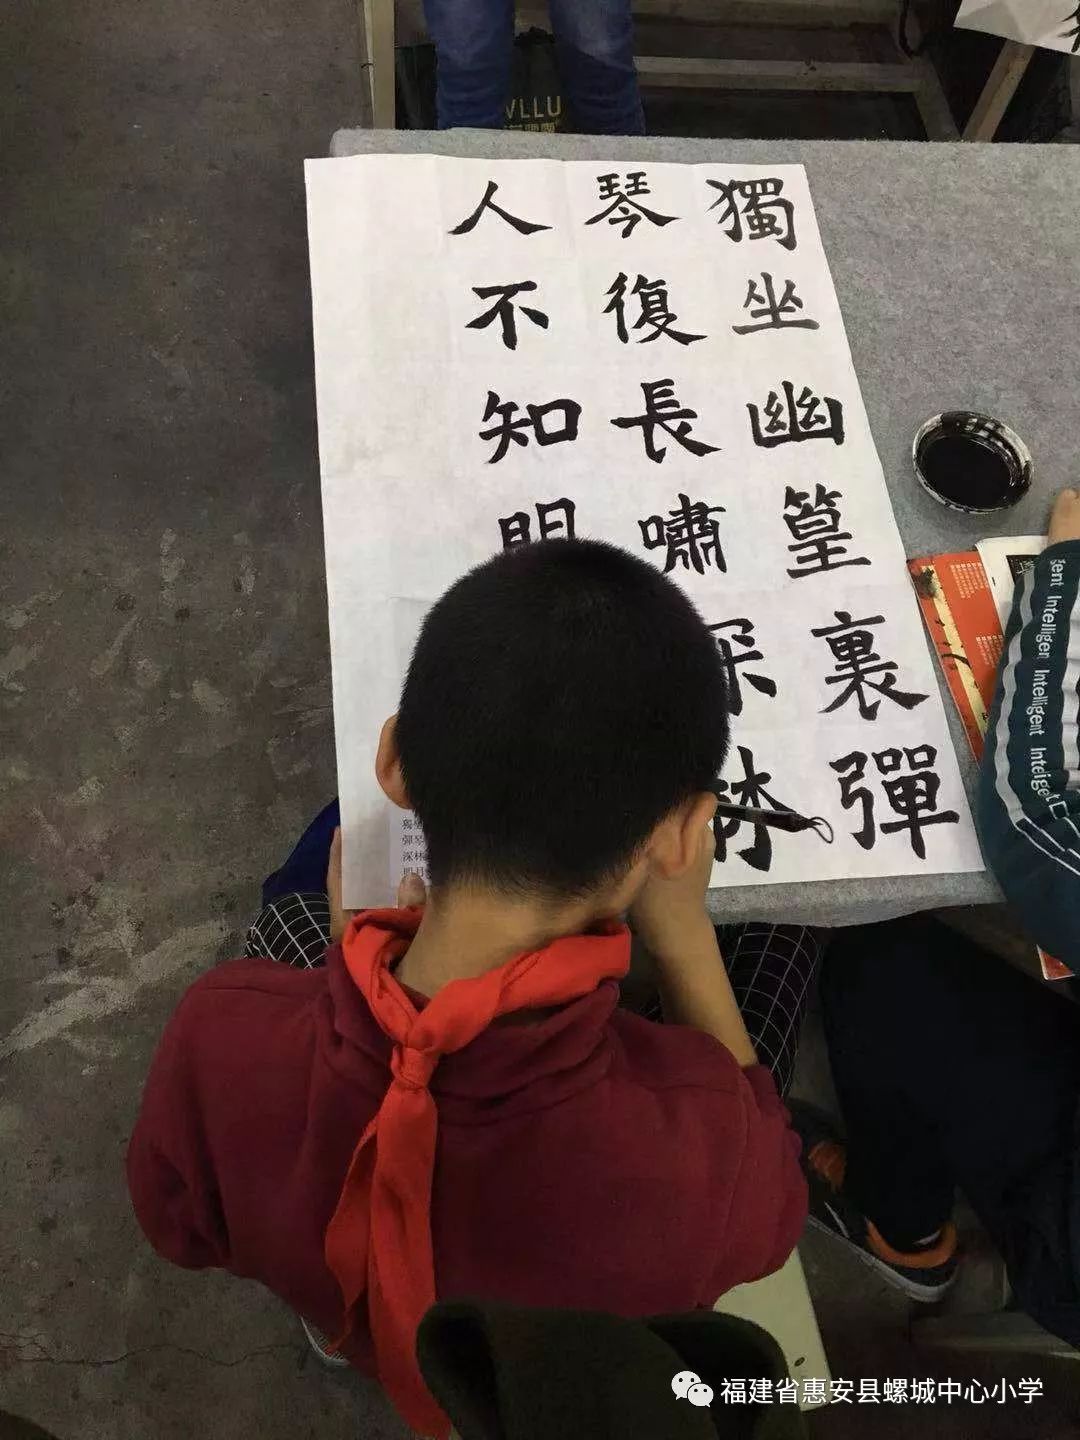 獨坐幽篁裏彈
琴復長嘯深林
人不知明
獨坐
彈琴
深林
明月
VLLU
Intelligent
Intelligent
Intelligent
福建省惠安县螺城中心小学